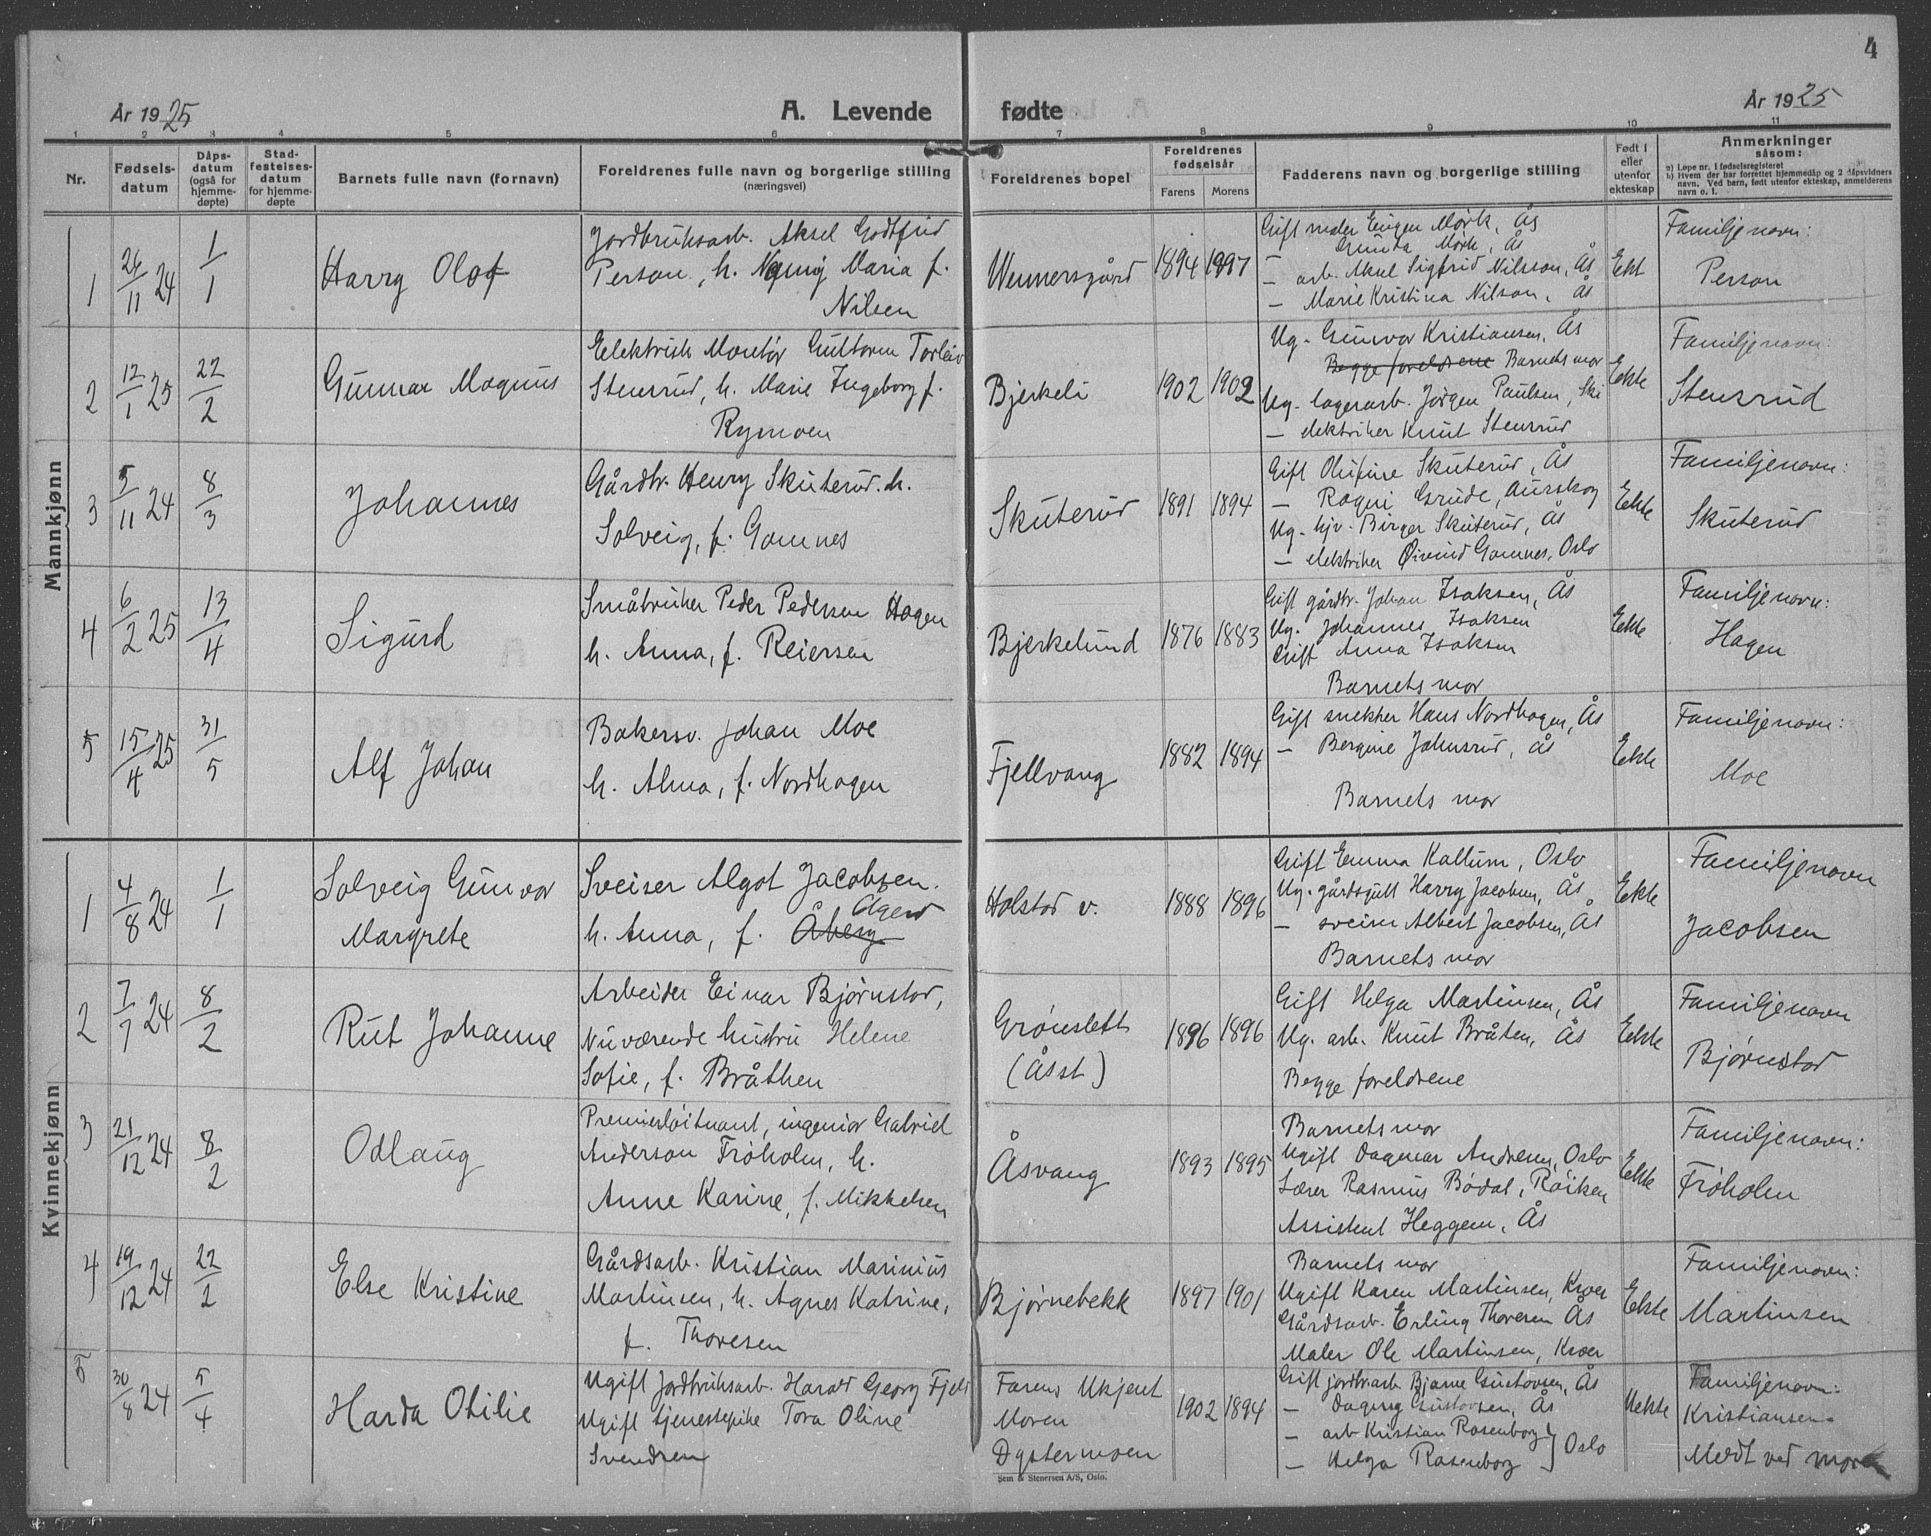 4
År 1925
A. Levende
fødte
År 1925
1 2 3 4 5 6 7 8 9 10 11
Nr.
Fødsels-
datum
Dåps-
datum
(også for
hjemme-
døpte)
Stad-
festelses-
datum
for hjemme-
døpte
Barnets fulle navn (fornavn)
Foreldrenes fulle navn og borgerlige stilling
(næringsvei)
Foreldrenes bopel
Foreldrenes
fødselsår
Farens Morens
Fadderens navn og borgerlige stilling
Født i
eller
utenfor
ekteskap
Anmerkninger
såsom:
a) Løpe nr. i fødselsregisteret
b) Hvem der har forrettet hjemmedåp og 2 dåpsvidners
navn. Ved barn, født utenfor ekteskap, anmelderens
navn o. l.
Mannkjønn
1
26/11 24
1/1
Harry Olof
Jordbruksarb. Aksel Godtfrid
Person, h. Maria f.
Nilsen
Wennersgård
1894
Gift maler Eugen Mørk, Ås
— Gunda Mørk, Ås
— arb. Aksel Sigfrid Nilsson, Ås
— Marie Kristina Nilson, Ås
Ekt
Familjenavn:
Person
2
12/1 25
22/2
Gunnar Magnus
Elektrisk Montør Guttorm Torleiv
Stensrud, h. Marie Ingeborg f.
Rymoen
Bjerkeli
1902 1902
Ug. Gunvor Kristiansen, Ås
Begge foreldrene Barnets mor
Ug. lagerarb. Jørgen Paulsen, Ski
— elektriker Knut Stensrud
Ekte
Familjenavn:
Stensrud
3
5/11 24
8/3
Johannes
Gårdbr. Henry Skuterud. h.
Solveig, f. Gamnes
Skuterud
1891 1894
Gift Olufine Skuterud, Ås
— Ragni Grude, Aurskog
Ug. hjv. Birger Skuterud, Ås
— elektriker Øivind Gamnes, Oslo
Ekte
Familjenavn:
Skuterud
4
6/2 25
13/4
Sigurd
Småbruker Peder Pedersen Hagen
h. Anna, f. Reiersen
Bjerkelund
1876 1883
Gift gårdbr. Johan Isaksen, Ås
Ug. Johannes Isaksen
Gift Anna Isaksen
Barnets mor
Ekte
Familjenavn:
Hagen
5
15/4 25
31/5
Alf Johan
Bakersv. Johan Moe
h. Alma, f. Nordhagen
Fjellvang
1882 1894
Gift snekker Hans Nordhagen, Ås
— Bergine Johnsrud, Ås
Barnets mor
Ekte
Familjenavn:
Moe
Kvinnekjønn
1
4/8 24
1/1
Solveig Gunvor
Margrete
Sveiser Algot Jacobsen.
h. Anna, f. Åberg
Holstad v.
1888 1896
Gift Emma Kallum, Oslo
Ug. gårdsgutt Harry Jacobsen, Ås
— sveiser Albert Jacobsen, Ås
Barnets mor
Ekte
Familjenavn
Jacobsen
2
7/7 24
8/2
Rut Johanne
Arbeider Einar Bjørnstad,
Nuværende hustru Helene
Sofie, f. Bråthen
Grønslett
(Åsst)
1896 1896
Gift Helga Martinsen, Ås
Ug. arb. Knut Bråten, Ås
Begge foreldrene
Ekte
Familjenavn
Bjørnstad
3
21/12 24
8/2
Odlaug
Premierløitnant, ingeniør Gabriel
Anderson Frøholm, h.
Anne Karine, f. Mikkelsen
Åsvang
1893 1895
Barnets mor
Ugift Dagmar Andresen, Oslo
Lærer Rasmus Bødal, Røiken
Assistent Heggem, Ås
Ekte
Familjenavn:
Frøholm
4
19/12 24
22/2
Else Kristine
Gårdsarb. Kristian Marinius
Martinsen, h. Agnes Katrine,
f. Thoresen
Bjørnebekk
1897 1901
Barnets mor
Ugift Karen Martinsen, Kroer
Gårdsarb. Erling Thoresen Ås
Maler Ole Martinsen, Kroer
Ekte
Familjenavn:
Martinsen
5
30/8 24
5/4
Harda Otilie
Ugift Jordbruksarb. Harald Georg Fjeld
Ugift tjenestepike Tora Oline
Svendsen
Farens Ukjent
Moren
Dystermoen
1902 1894
Gift jordbrarb Bjarne Gustavsen, Ås
— Dagny Gustavsen, Ås
— arb Kristian Rosenborg
— Helga Rosenborg } Oslo
Uekte
Familjenavn:
Kristiansen.
Medt ved moren
Sem & Stenersen A/S, Oslo.